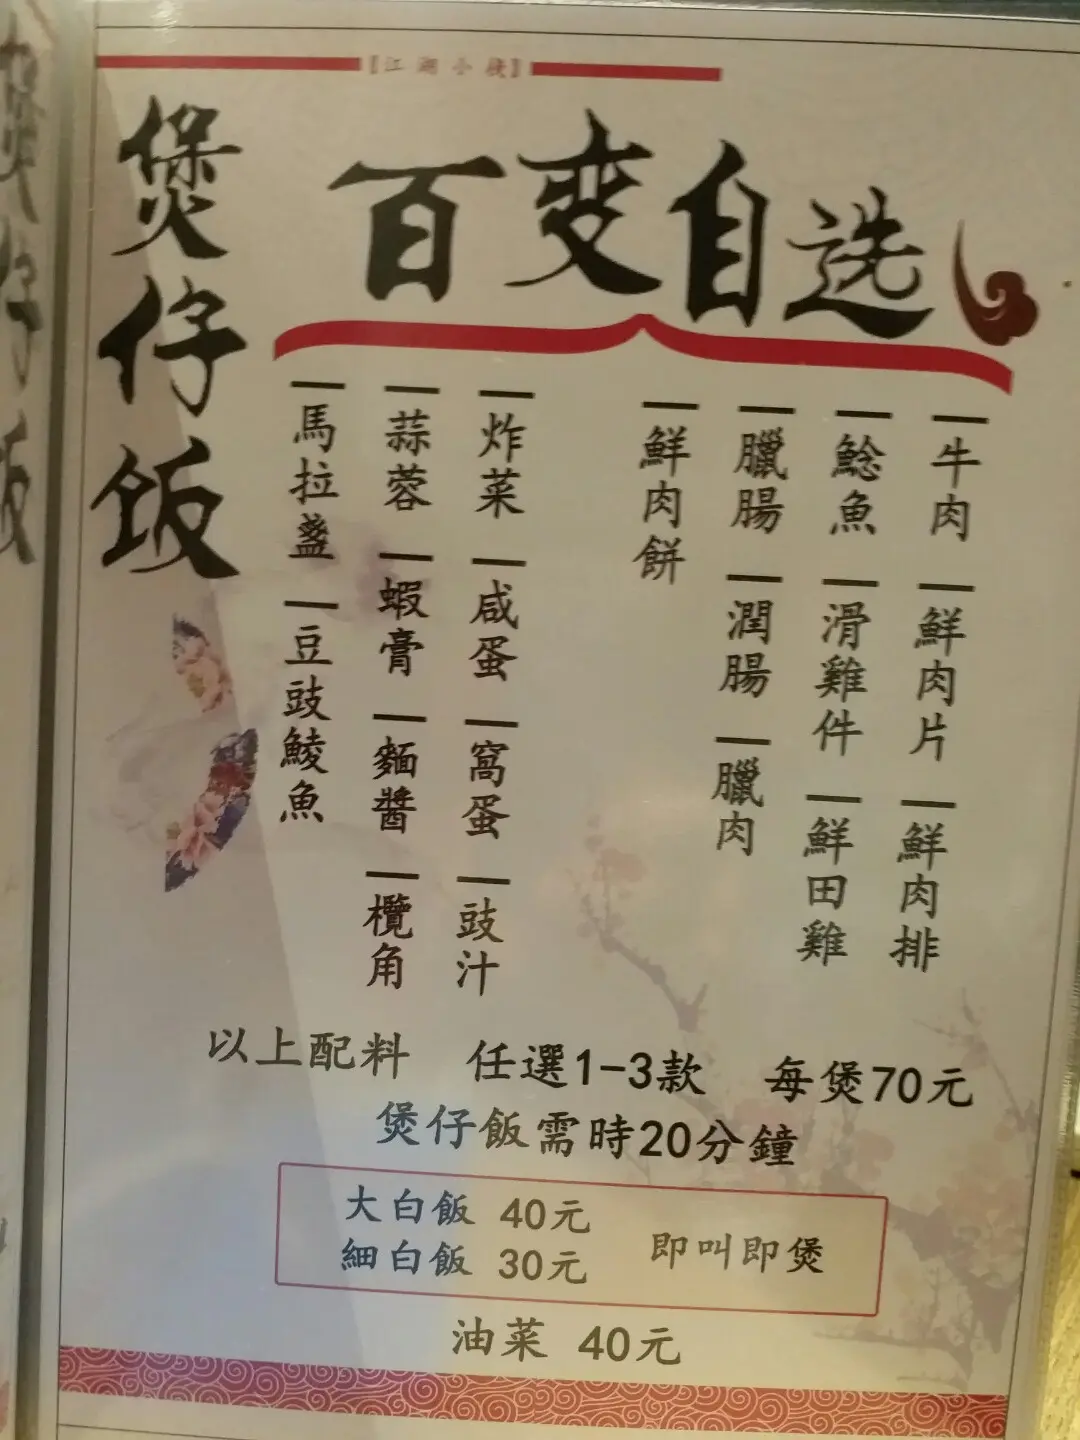 【江湖小棧】
煲仔饭
百变自选
牛肉
鮮肉片
鮮肉排
鯰魚
滑雞件
鮮田雞
臘腸
潤腸
臘肉
鮮肉餅
炸菜
咸蛋
窩蛋
豉汁
蒜蓉
蝦膏
麵醬
欖角
馬拉盞
豆豉鯪魚
以上配料 任選1-3款 每煲70元
煲仔飯需時20分鐘
大白飯 40元
細白飯 30元
即叫即煲
油菜 40元